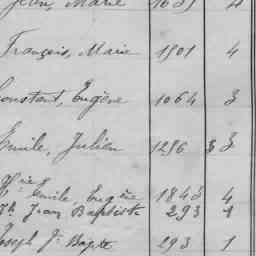 Jean, Marie
François, Marie 1901 4
Constant, Eugène 1064 3
Emile, Julien 1296 3 3
Emile, Eugène 1843 4
Jean Baptiste 293 1
Joseph Jn Bapte 293 1